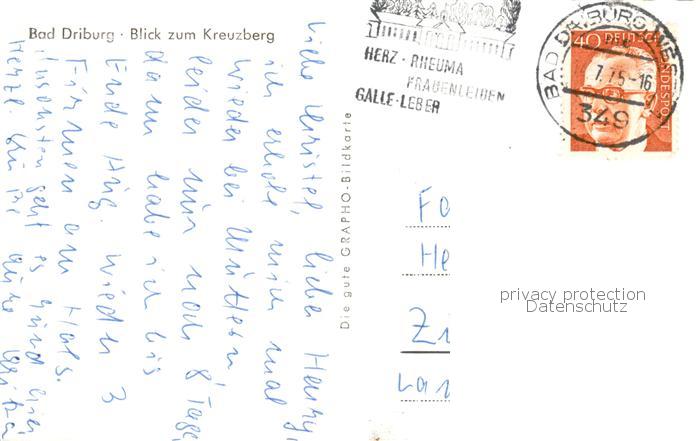 Bad Driburg · Blick zum Kreuzberg
Liebe Christel, lieber Henry,
ich erhole mich mal
wieder bei Muttern,
leider nur noch 8 Tage,
dann habe ich bis
Ende Aug. wieder 3
Firmen am Hals.
Ansonsten geht es
Herzl. Grüße
Die gute GRAPHO-Bildkarte
HERZ · RHEUMA
FRAUENLEIDEN
GALLE · LEBER
BAD DRIBURG
7.75-16
349
40 DEUTSCHE BUNDESPOST
Fa
He
Zi
Lan
privacy protection
Datenschutz